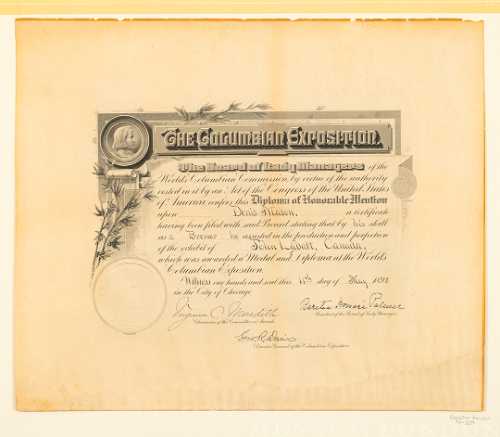 The Columbian Exposition.
The Board of Lady Managers of the
World's Columbian Commission, by virtue of the authority
vested in it by an Act of the Congress of the United States
of America confers this Diploma of Honorable Mention
upon Denis Mason, a certificate
having been filed with said Board stating that by his skill
as a Brewer he assisted in the production and perfection
of the exhibit of John Labatt, Canada,
which was awarded a Medal and Diploma at the World's
Columbian Exposition.
Witness our hands and seal this 11th day of May 1894
in the City of Chicago.
Virginia C. Meredith
Chairman of the Committee on Awards.
Bertha Honoré Palmer
President of the Board of Lady Managers.
Geo. R. Davis
Director General of the Columbian Exposition